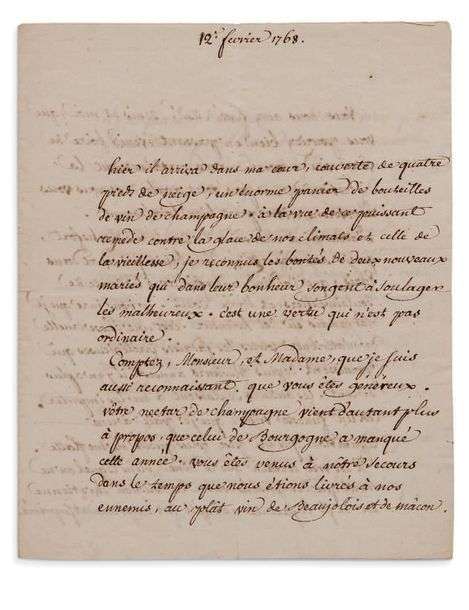 12e. fevrier 1768.
hier il arriva dans ma cour, couverte de quatre
pieds de neige, un enorme panier de bouteilles
de vin de champagne. à la vue de ce puissant
remede contre la glace de nos climats et celle de
la vieillesse, je reconnus les bontés de deux nouveaux
mariés qui dans leur bonheur songent à soulager
les malheureux. c'est une vertu qui n'est pas
ordinaire.
Comptez, Monsieur, et Madame, que je suis
aussi reconnaissant, que vous êtes généreux.
vôtre nectar de champagne vient d'autant plus
à propos, que celui de Bourgogne a manqué
cette année. vous êtes venus à nôtre secours
dans le temps que nous étions livrés à nos
ennemis, au plat vin de Beaujolois et de mâcon.